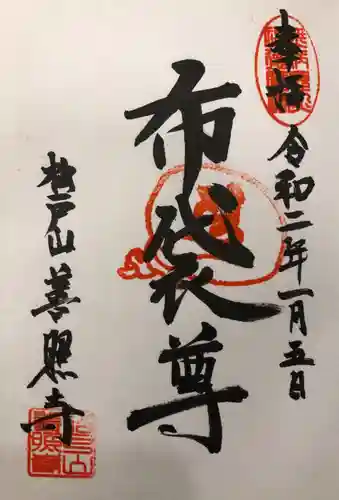 奉拝
令和二年一月五日
布袋尊
杉戸山善照寺